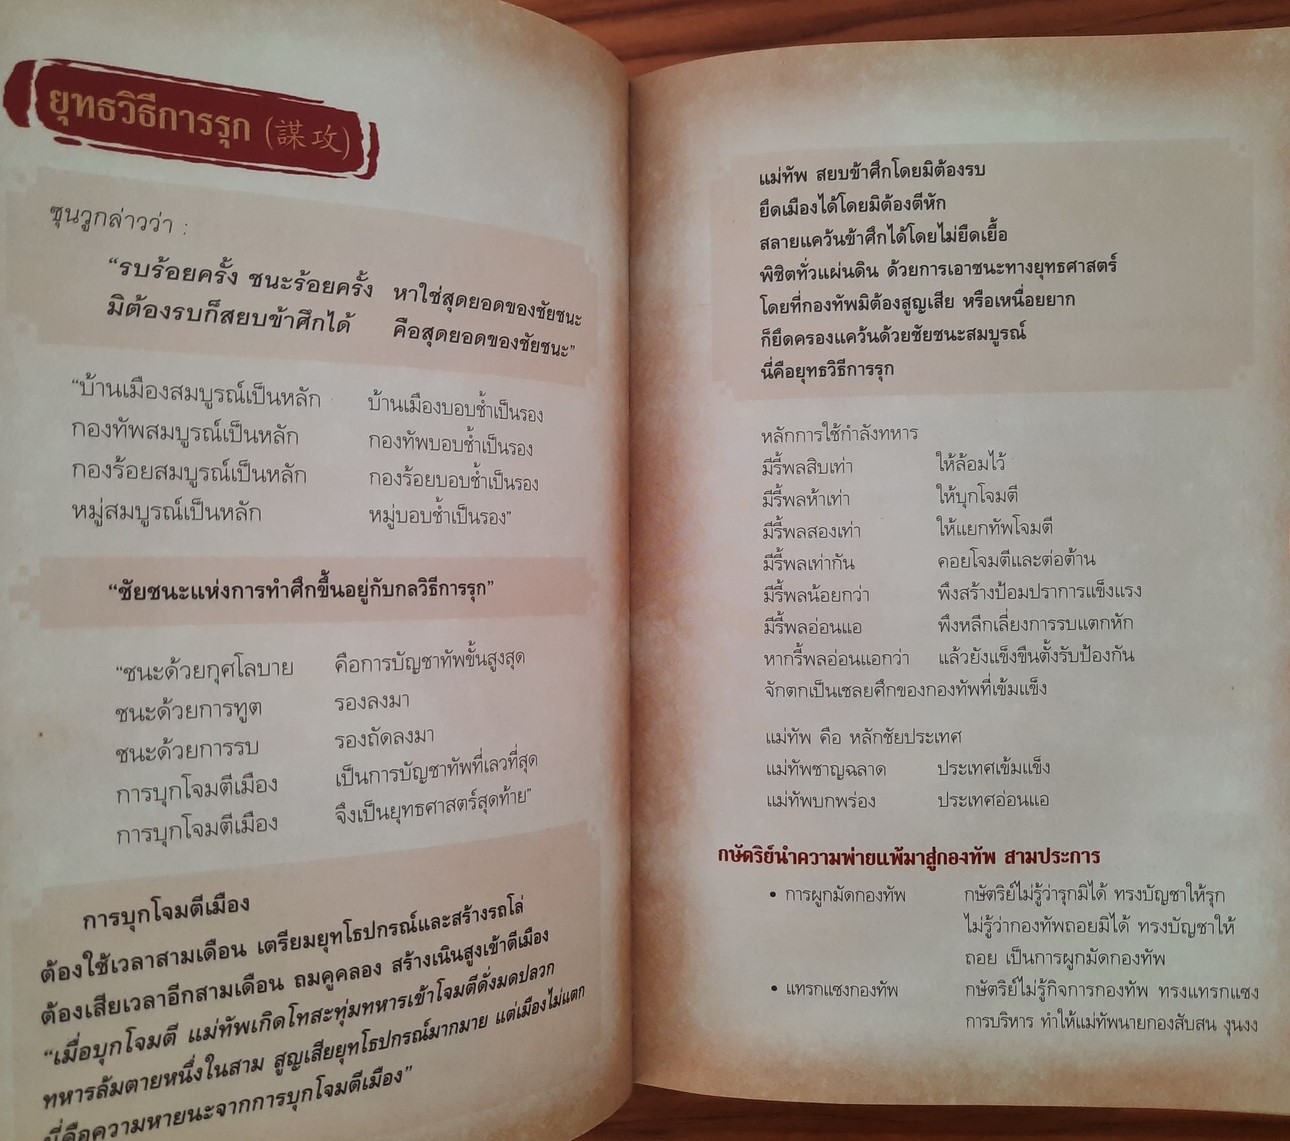 ยุทธวิธีการรุก (謀攻)
ซุนวูกล่าวว่า :
“รบร้อยครั้ง ชนะร้อยครั้ง หาใช่สุดยอดของชัยชนะ
มิต้องรบก็สยบข้าศึกได้ คือสุดยอดของชัยชนะ”
“บ้านเมืองสมบูรณ์เป็นหลัก บ้านเมืองบอบช้ำเป็นรอง
กองทัพสมบูรณ์เป็นหลัก กองทัพบอบช้ำเป็นรอง
กองร้อยสมบูรณ์เป็นหลัก กองร้อยบอบช้ำเป็นรอง
หมู่สมบูรณ์เป็นหลัก หมู่บอบช้ำเป็นรอง”
“ชัยชนะแห่งการทำศึกขึ้นอยู่กับกลวิธีการรุก”
“ชนะด้วยกุศโลบาย คือการบัญชาทัพขั้นสูงสุด
ชนะด้วยการทูต รองลงมา
ชนะด้วยการรบ รองถัดลงมา
การบุกโจมตีเมือง เป็นการบัญชาทัพที่เลวที่สุด
การบุกโจมตีเมือง จึงเป็นยุทธศาสตร์สุดท้าย”
การบุกโจมตีเมือง
ต้องใช้เวลาสามเดือน เตรียมยุทโธปกรณ์และสร้างรถโล่
ต้องเสียเวลาอีกสามเดือน ถมคูคลอง สร้างเนินสูงเข้าตีเมือง
“เมื่อบุกโจมตี แม่ทัพเกิดโทสะทุ่มทหารเข้าโจมตีดั่งมดปลวก
ทหารล้มตายหนึ่งในสาม สูญเสียยุทโธปกรณ์มากมาย แต่เมืองไม่แตก
นี่คือความหายนะจากการบุกโจมตีเมือง”
แม่ทัพ สยบข้าศึกโดยมิต้องรบ
ยึดเมืองได้โดยมิต้องตีหัก
สลายแคว้นข้าศึกได้โดยไม่ยืดเยื้อ
พิชิตทั่วแผ่นดิน ด้วยการเอาชนะทางยุทธศาสตร์
โดยที่กองทัพมิต้องสูญเสีย หรือเหนื่อยยาก
ก็ยึดครองแคว้นด้วยชัยชนะสมบูรณ์
นี่คือยุทธวิธีการรุก
หลักการใช้กำลังทหาร
มีรี้พลสิบเท่า ให้ล้อมไว้
มีรี้พลห้าเท่า ให้บุกโจมตี
มีรี้พลสองเท่า ให้แยกทัพโจมตี
มีรี้พลเท่ากัน คอยโจมตีและต่อต้าน
มีรี้พลน้อยกว่า พึงสร้างป้อมปราการแข็งแรง
มีรี้พลอ่อนแอ พึงหลีกเลี่ยงการรบแตกหัก
หากรี้พลอ่อนแอกว่า แล้วยังแข็งขืนตั้งรับป้องกัน
จักตกเป็นเชลยศึกของกองทัพที่เข้มแข็ง
แม่ทัพ คือ หลักชัยประเทศ
แม่ทัพชาญฉลาด ประเทศเข้มแข็ง
แม่ทัพบกพร่อง ประเทศอ่อนแอ
กษัตริย์นำความพ่ายแพ้มาสู่กองทัพ สามประการ
• การผูกมัดกองทัพ กษัตริย์ไม่รู้ว่ารุกมิได้ ทรงบัญชาให้รุก
ไม่รู้ว่ากองทัพถอยมิได้ ทรงบัญชาให้
ถอย เป็นการผูกมัดกองทัพ
• แทรกแซงกองทัพ กษัตริย์ไม่รู้กิจการกองทัพ ทรงแทรกแซง
การบริหาร ทำให้แม่ทัพนายกองสับสน งุนงง